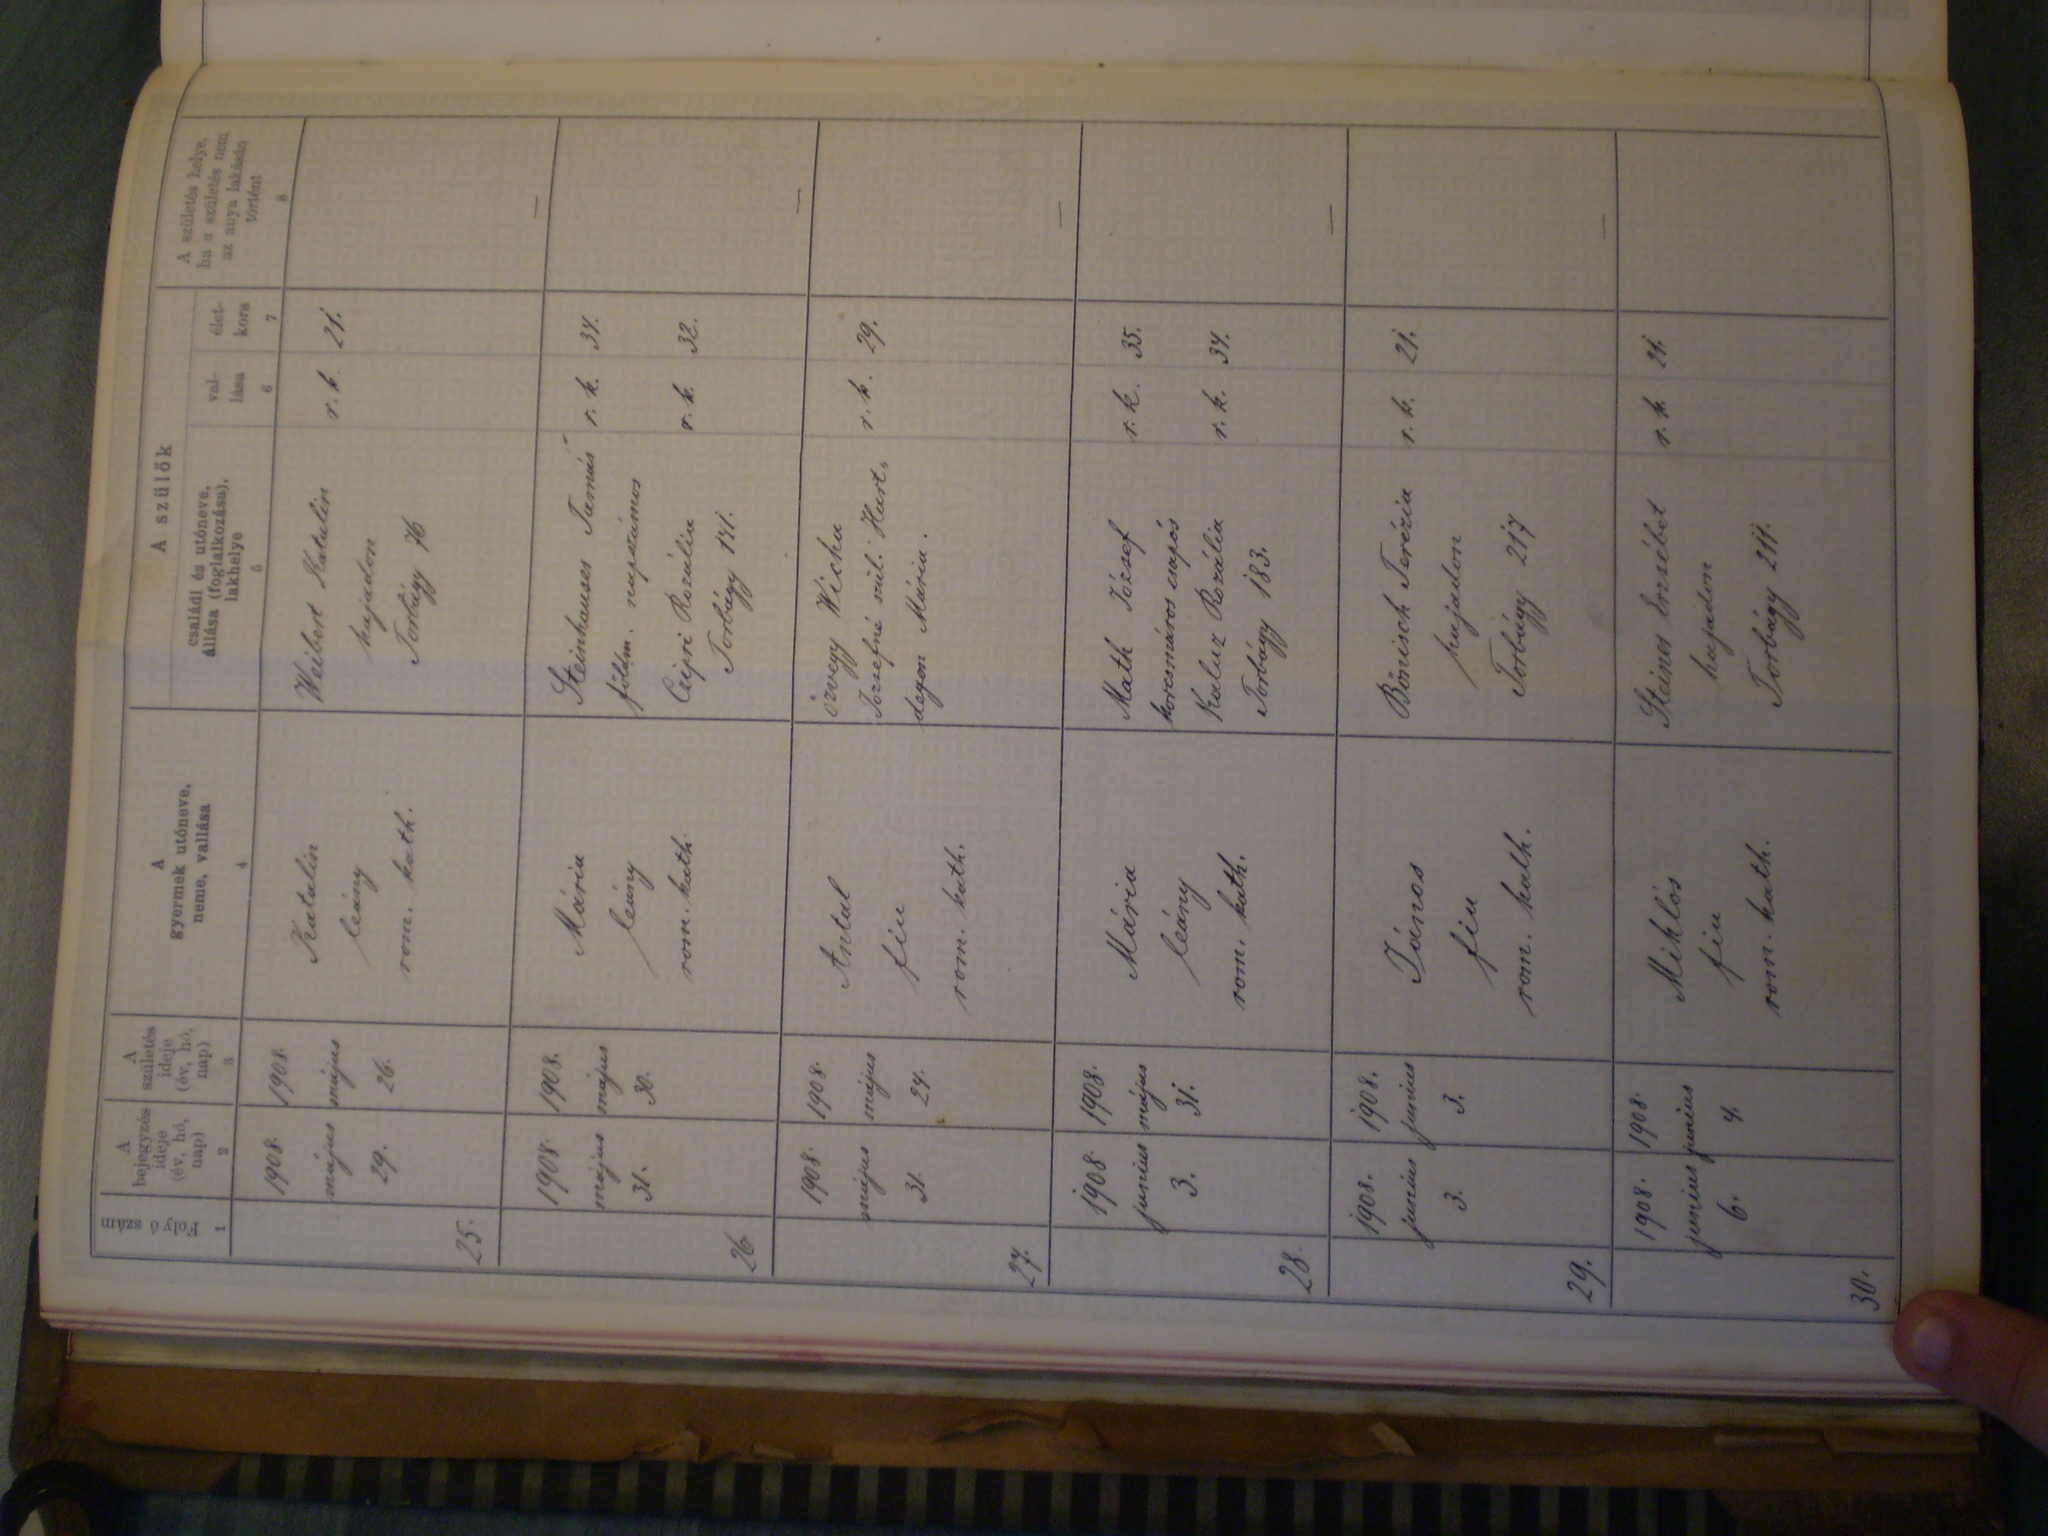 Folyó szám
1
A
bejegyzés
ideje
(év, hó,
nap)
2
A
születés
ideje
(év, hó,
nap)
3
A
gyermek utóneve,
neme, vallása
4
A szülők
családi és utóneve,
állása (foglalkozása),
lakhelye
5
val-
lása
6
élet-
kora
7
A születés helye,
ha a születés nem
az anya lakásán
történt
8
25.
1908.
május
29.
1908.
május
26.
Katalin
leány
rom. kath.
Weibert Katalin
hajadon
Torbágy 76
r. k. 21.
26.
1908.
május
31.
1908.
május
30.
Mária
leány
rom. kath.
Steinhauser Tamás
földm. napszámos
Czipri Rozália
Torbágy 171.
r. k. 34.
r. k. 32.
—
27.
1908.
május
31.
1908.
május
24.
Antal
fiu
rom. kath.
özvegy Wichu
Józsefné szül. Hart-
degen Mária.
r. k. 29.
—
28.
1908.
junius
3.
1908.
május
31.
Mária
leány
rom. kath.
Math József
korcsmáros csapós
Kaluz Rozália
Torbágy 183.
r. k. 35.
r. k. 34.
—
29.
1908.
junius
3.
1908.
junius
3.
János
fiu
rom. kath.
Bönisch Terézia
hajadon
Torbágy 217
r. k. 21.
—
30.
1908.
junius
6.
1908.
junius
4.
Miklós
fiu
rom. kath.
Steiner Erzsébet
hajadon
Torbágy 211.
r. k. 21.
—